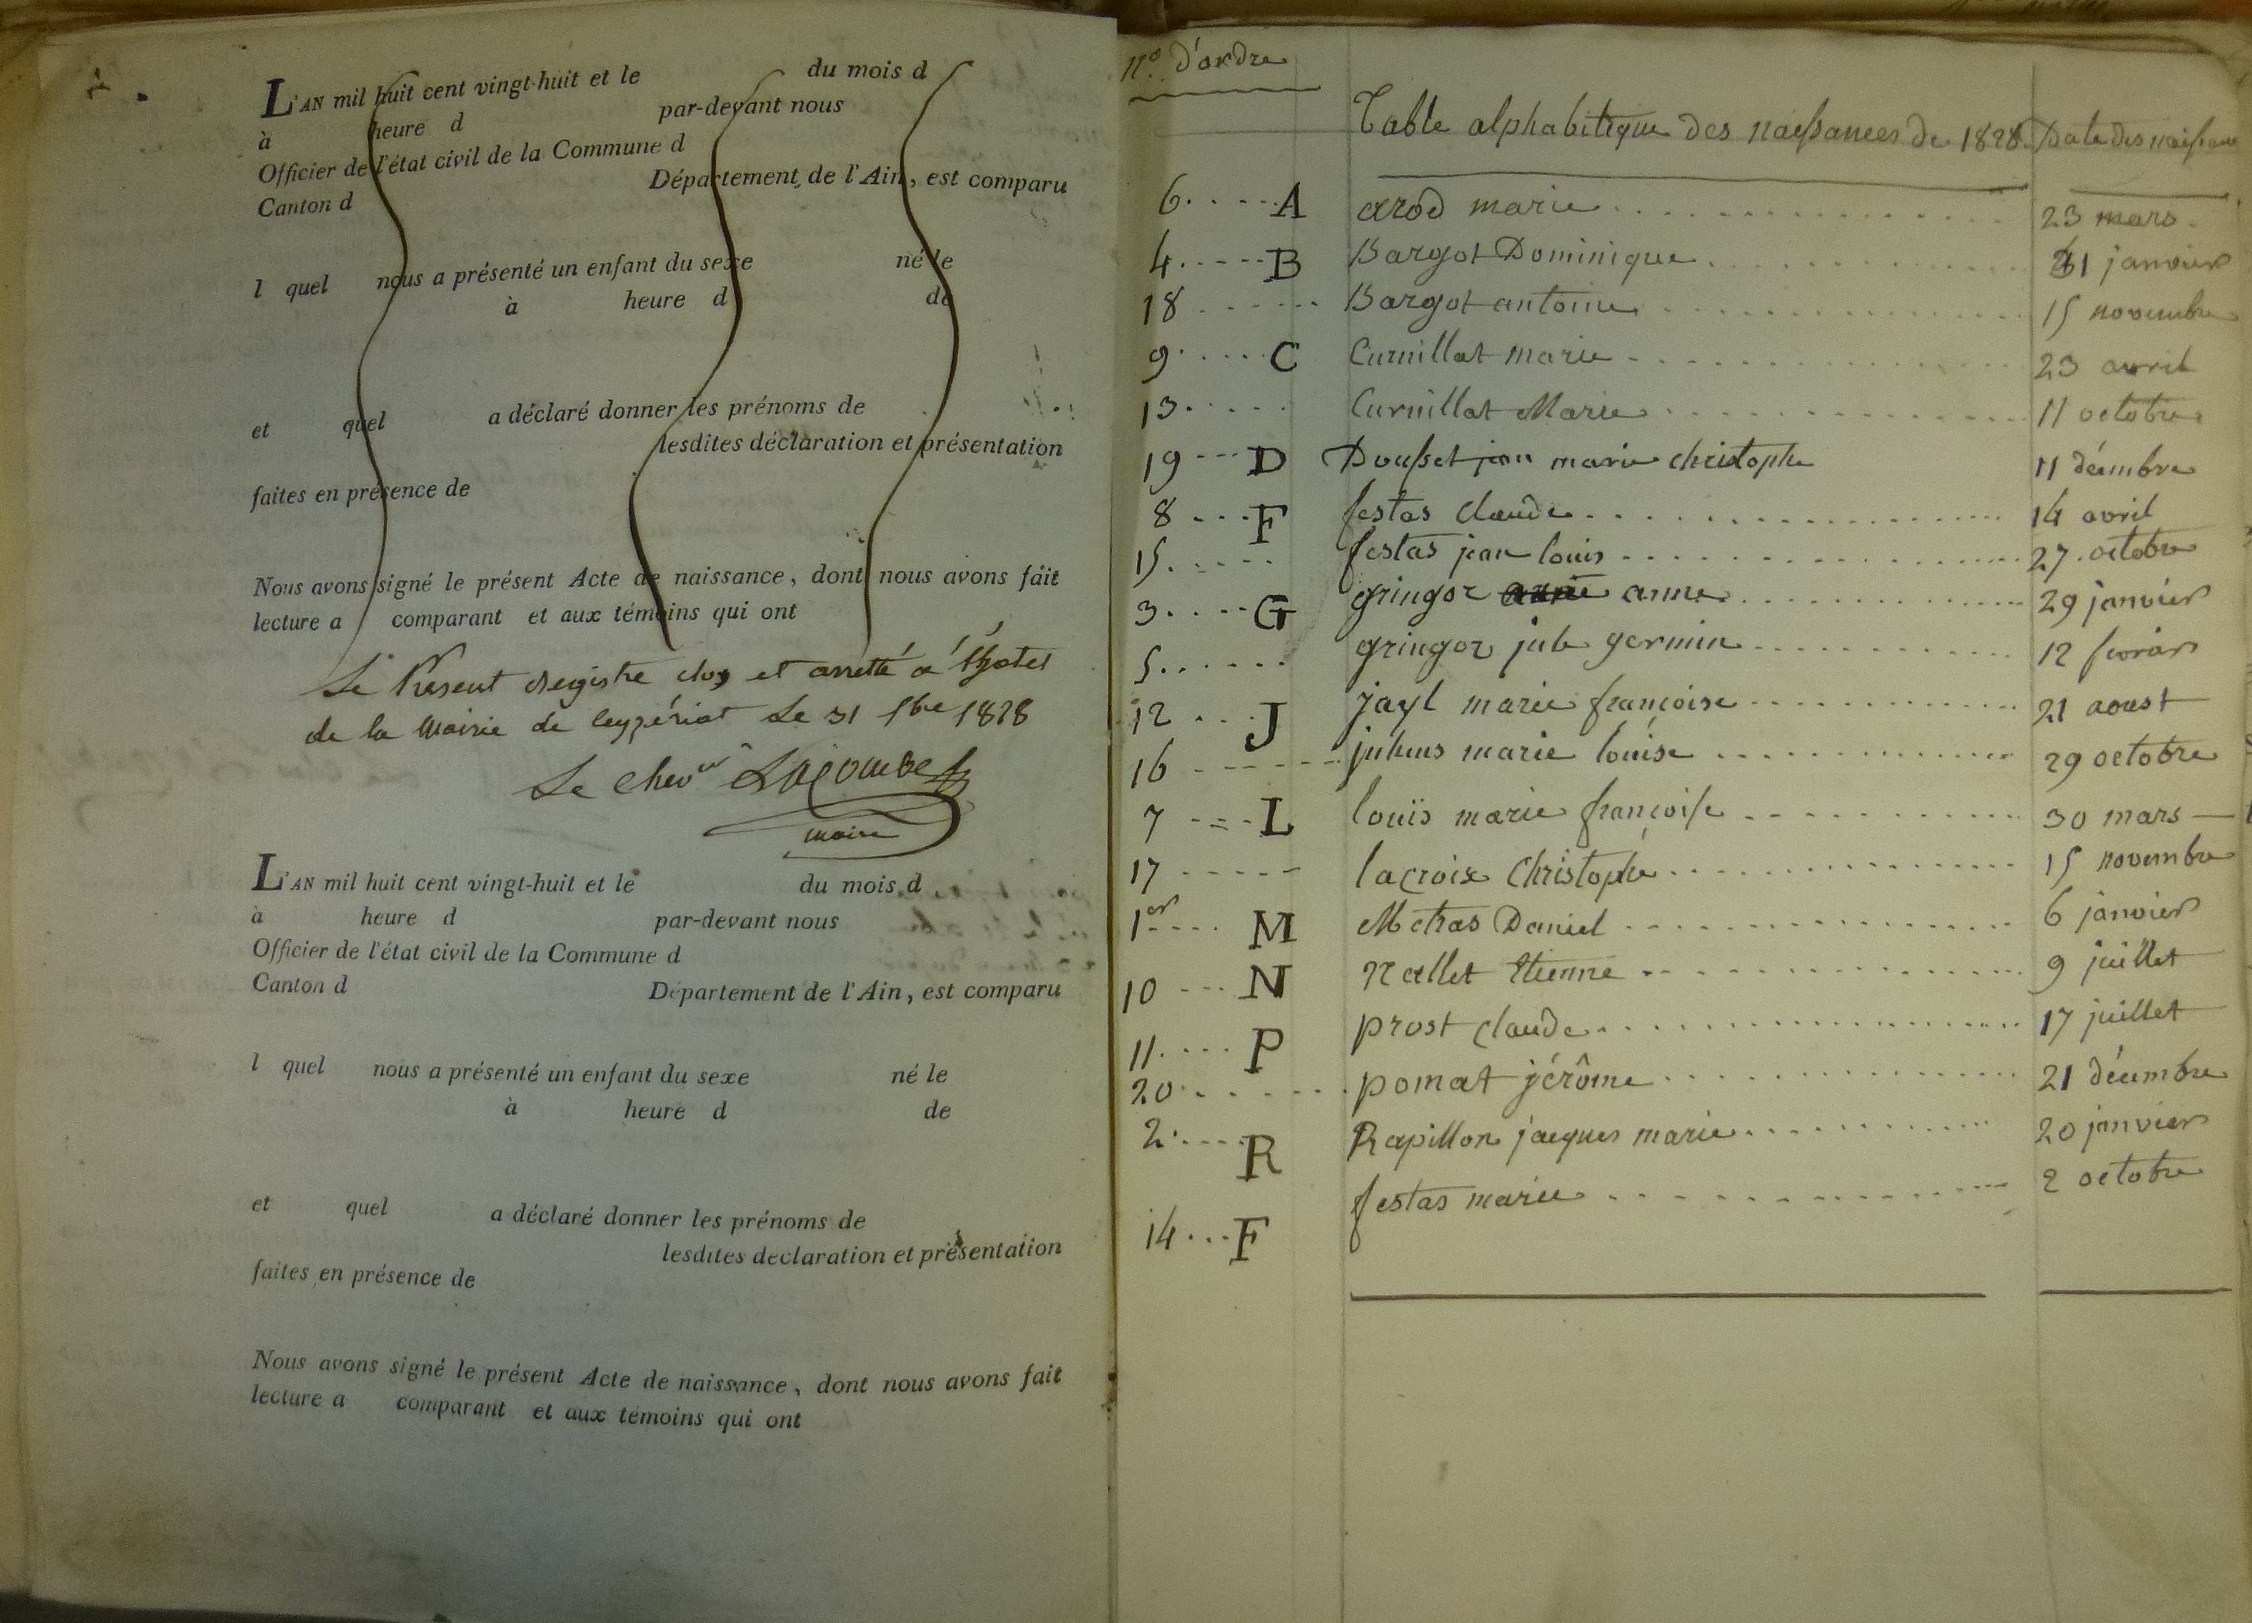 L'AN mil huit cent vingt-huit et le du mois d
à heure d par-devant nous
Officier de l'état civil de la Commune d
Canton d Département de l'Ain, est comparu
l quel nous a présenté un enfant du sexe né le
à heure d de
et quel a déclaré donner les prénoms de
lesdites déclaration et présentation
faites en présence de
Nous avons signé le présent Acte de naissance, dont nous avons fait
lecture a comparant et aux témoins qui ont
Le Présent Registre clos et arretté a l'hotel
de la Mairie de leyzériat Le 31 Xbre 1828
Le Chever Lacombe
maire
L'AN mil huit cent vingt-huit et le du mois d
à heure d par-devant nous
Officier de l'état civil de la Commune d
Canton d Département de l'Ain, est comparu
l quel nous a présenté un enfant du sexe né le
à heure d de
et quel a déclaré donner les prénoms de
lesdites declaration et présentation
faites en présence de
Nous avons signé le présent Acte de naissance, dont nous avons fait
lecture a comparant et aux témoins qui ont
no. d'ordre
Table alphabetique des naissances de 1828. Date des naissances
6 A arod marie 23 mars
4 B Bargot Dominique 31 janvier
18 Bargot antoine 15 novembre
9 C Curnillat marie 23 avril
13 Curnillat Marie 11 octobre
19 D Dousset jean marie christophe 11 décembre
8 F festas claude 14 avril
15 festas jean louis 27 octobre
3 G gringoz anne 29 janvier
5 gringoz germin 12 fevrier
12 J jayl marie françoise 21 aoust
16 marie louise 29 octobre
7 L louis marie françoise 30 mars
17 lacroix Christophe 15 novembre
1er M Metras Daniel 6 janvier
10 N Nallet Etienne 9 juillet
11 P prost claude 17 juillet
20 pomat jérôme 21 décembre
2 R Rapillon jacques marie 20 janvier
14 F festas marie 2 octobre